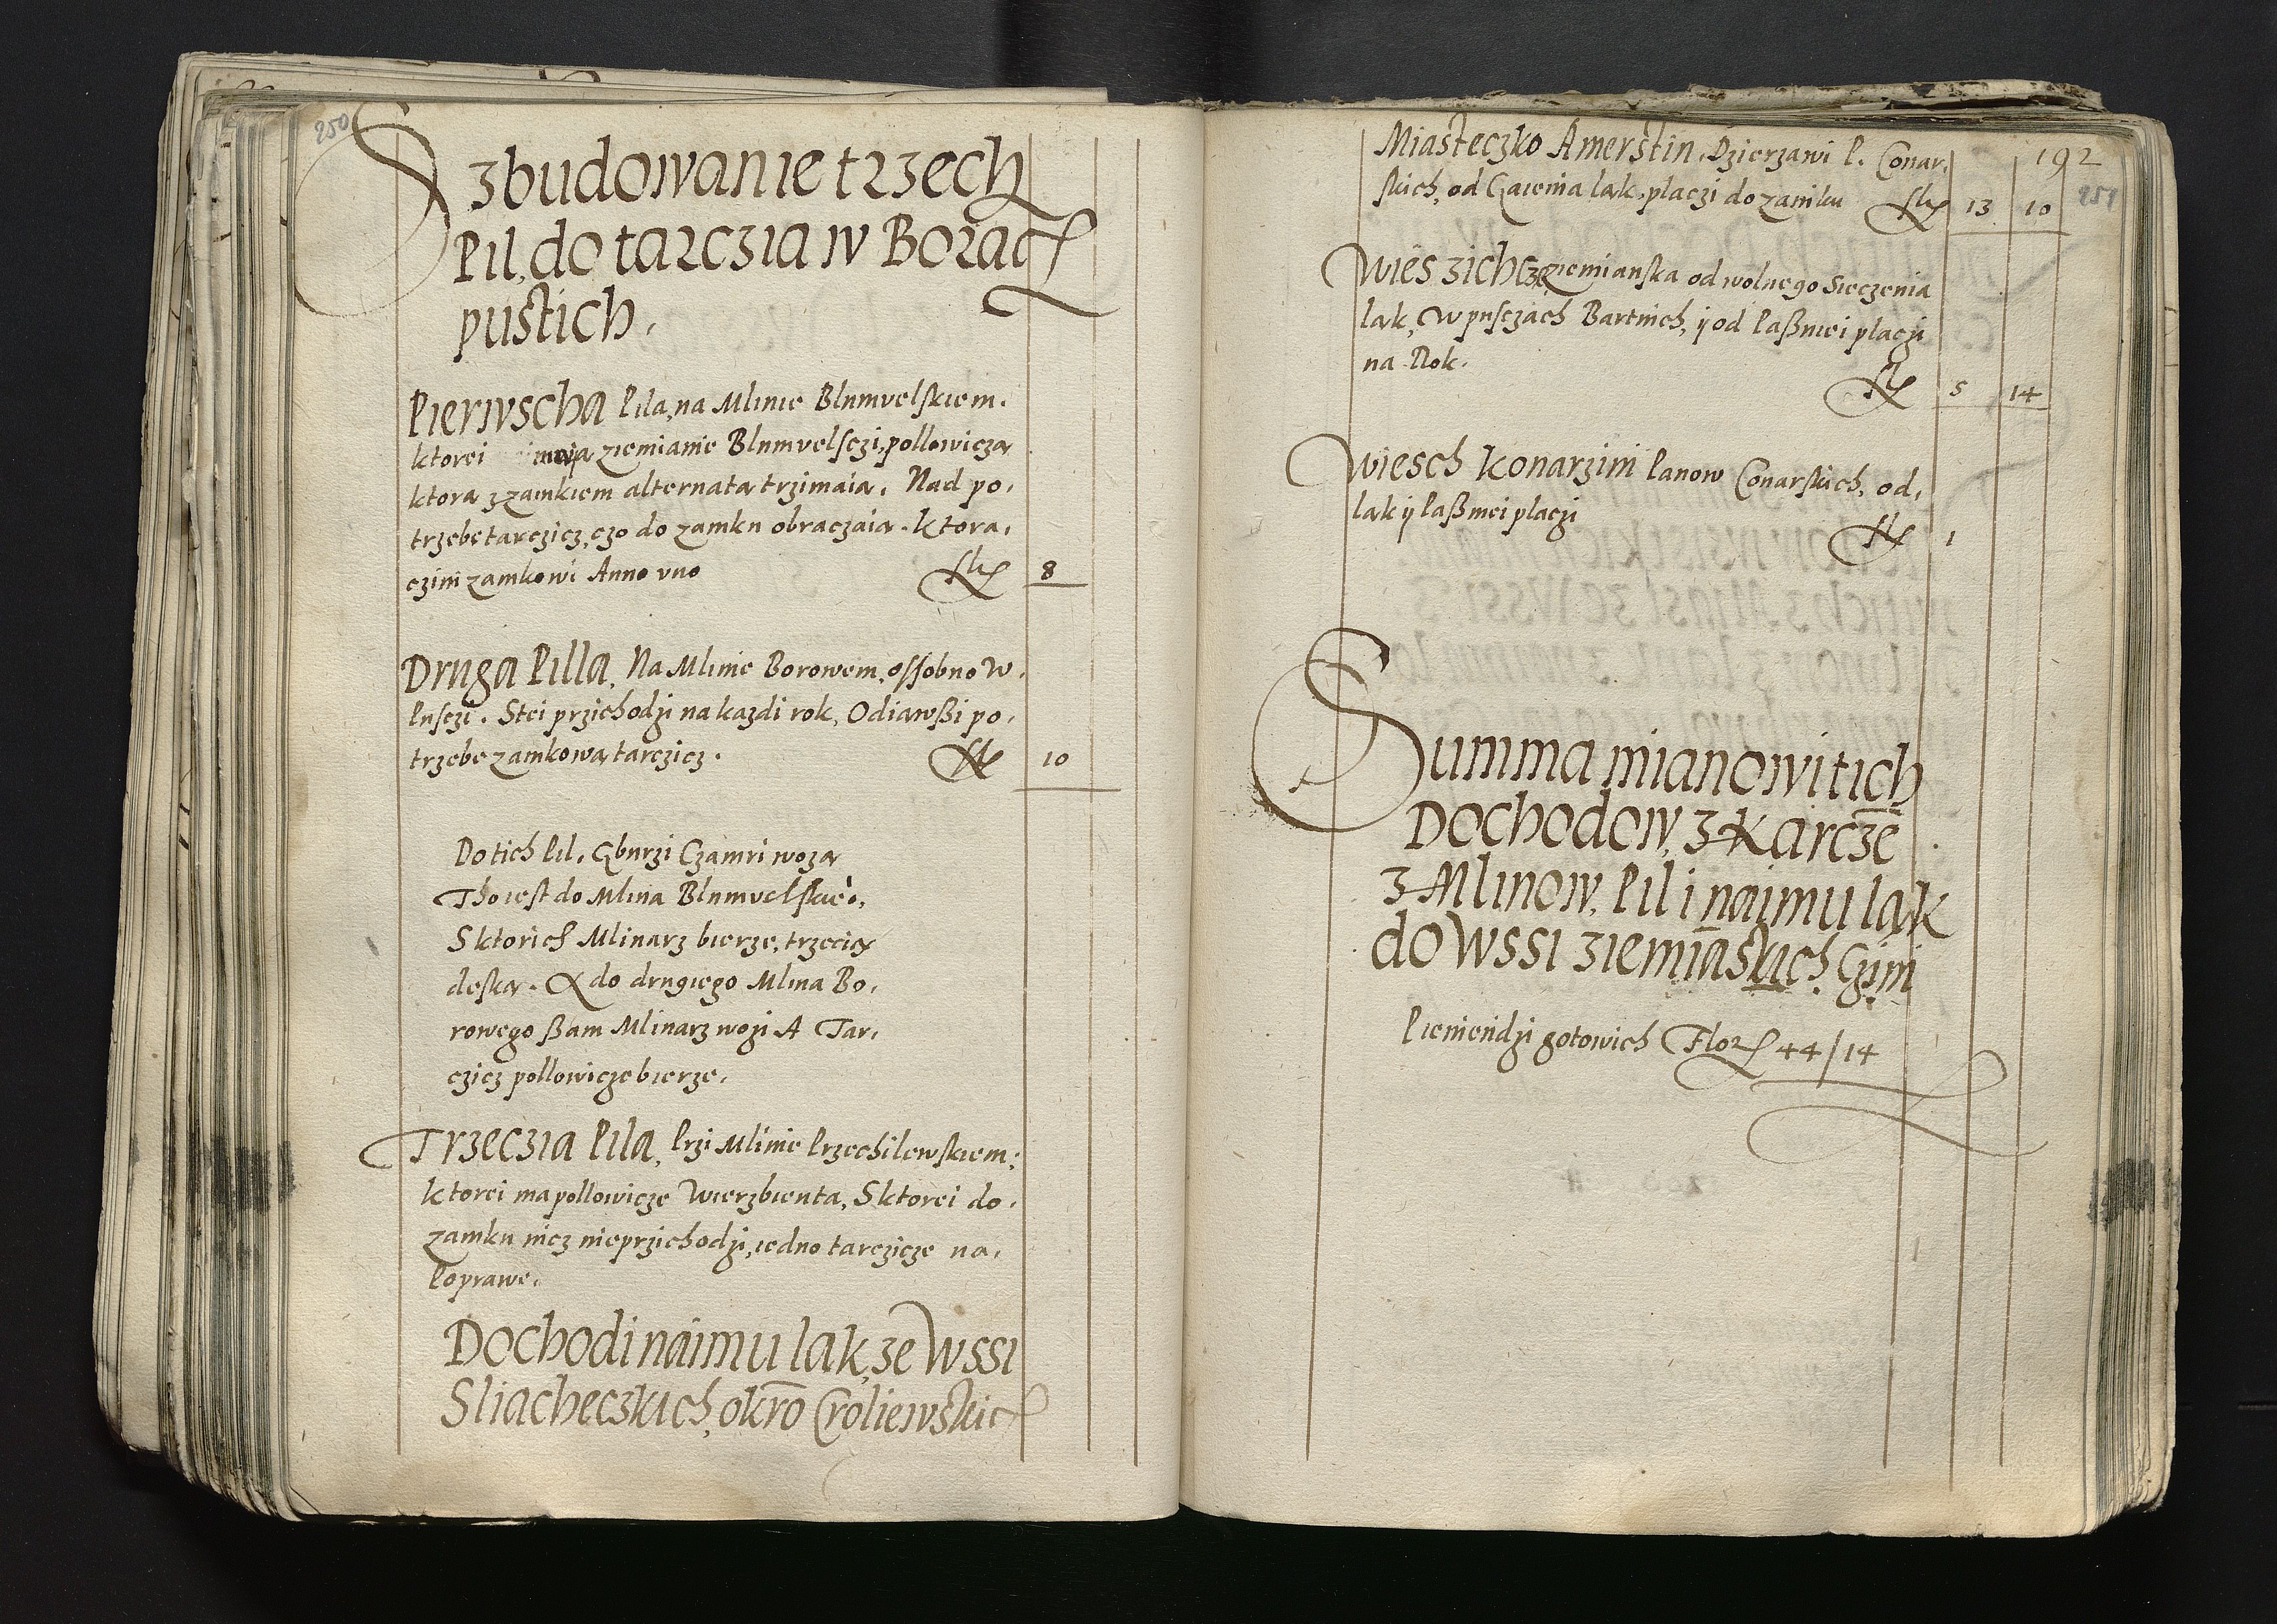 250
Zbudowanie trzech
Pil, do tarczia w Borach
pustich.
Pierwscha Pila, na Mlinie Blumvelskiem.
ktorei maia ziemianie Blumvelsczi, pollowicza
ktora z zamkiem alternata trzimaia. Nad po,
trzebe tarczicz, czo do zamku obraczaia. ktora,
czini zamkowi Anno uno fl 8
Druga Pilla, Na Mlinie Borowem, ossobno w,
Pusczi. Stei przichodzi na kazdi rok, Odiawßi po,
trzebe zamkowa tarczicz. fl 10
Do tich Pil, Gburzi Czamri woza
Tho iest do Mlina Blumvelskieo,
S ktorich Mlinarz bierze, trzecia
deska. A do drugiego Mlina Bo,
rowego ßam Mlinarz wozi A Tar,
czicz pollowicze bierze.
Trzeczia Pila, Przi Mlinie Przechilewskiem:
ktorei ma pollowicze Wierzbienta, S ktorei do,
zamku nicz nieprzichodzi, iedno tarczicze na,
Poprawe.
Dochodi naimu lak, ze Wssi
Sliacheczkich, okrō Croliewskich
192
251
Miasteczko Amerstin, Dzierzawi P. Conar,
skich, od Gaienia lak, placzi do zamku fl 13 10
Wies ziemianska od wolnego Sieczenia
lak, w pusczach Bartnich, ÿ od Paßniei placzi
na Rok. fl 5 14
Wiesch Konarzini Panow Conarskich, od,
lak ÿ Paßniei placzi fl 1
Summa mianowitich
Dochodow, z Karcze
z Mlinow, Pil i naimu lak
do Wssi ziemiāskich Czini
Pieniendzi gotowich Flor 44/14